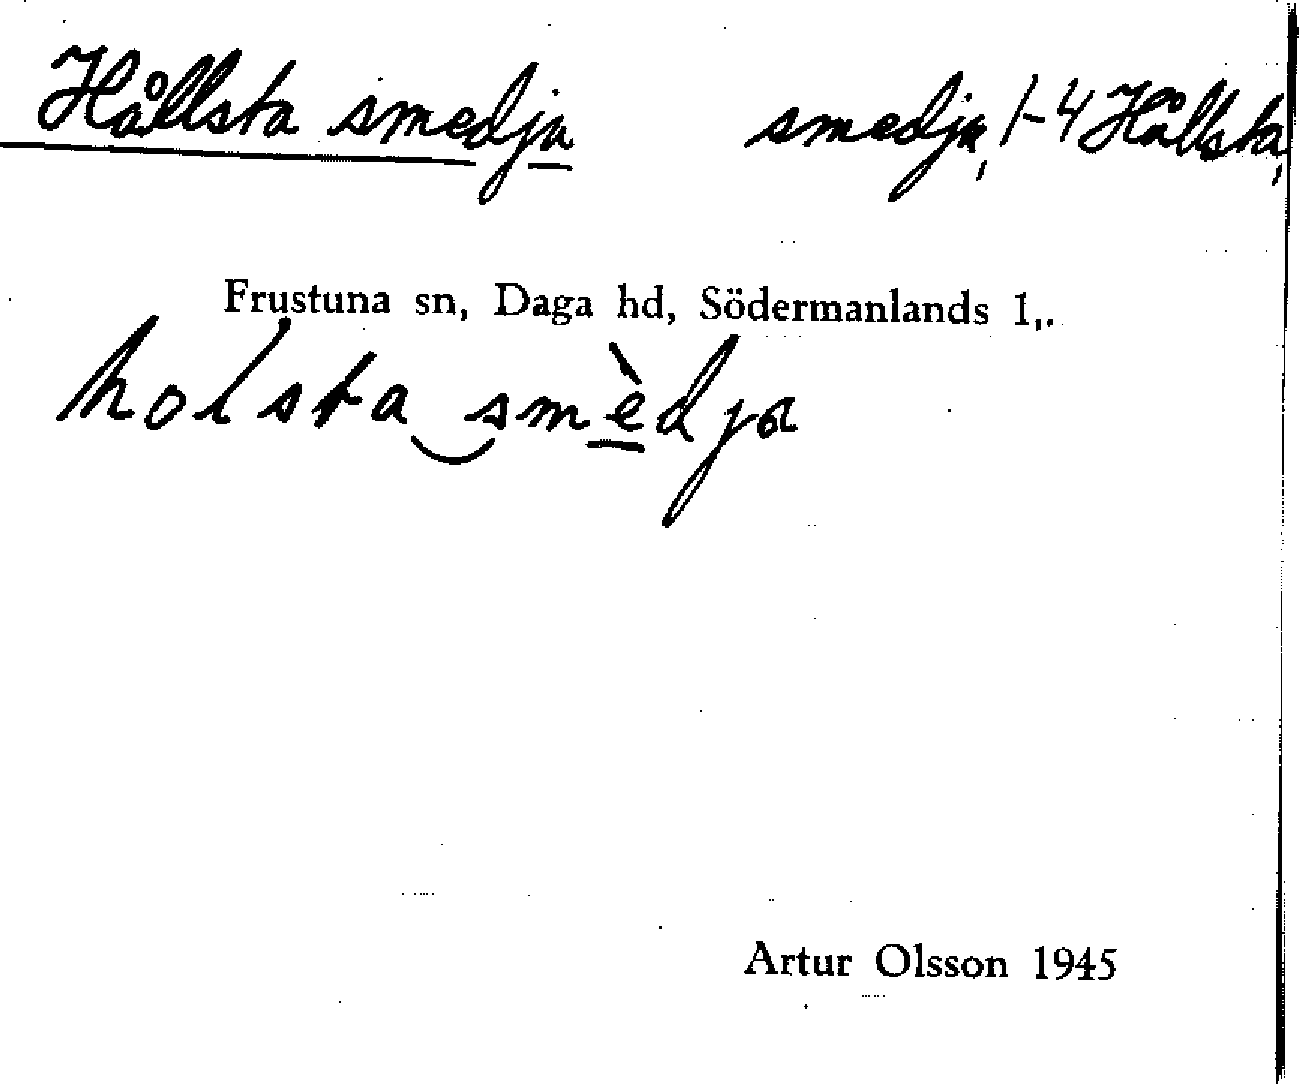 Hållsta smedja smedja, 1-4 Hållsta,
Frustuna sn, Daga hd, Södermanlands l,.
holsta smèdja
Artur Olsson 1945